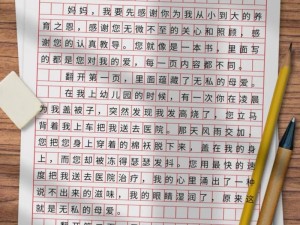 妈妈，我要先感谢你为我从小到大的养
育之恩，感谢您无微不至的关心和照顾，感
谢您的认真教导。您就像是一本书，里面写
的都是您对我的爱，每一页内容都不同。
翻开第一页，里面蕴藏了无私的母爱。
在我上幼儿园的时候，有一次你在凌晨
为我盖被子，突然发现我发高烧了，您立马
背着我上车把我送去医院。那天风雨交加，
您把您身上穿着的棉袄脱下来，盖在我的身
上，而您却被冻得瑟瑟发抖。您用最快的速
度把我送去医院治疗，我的心里涌出了一种
说不出来的滋味，我的眼睛湿润了，原来这
就是无私的母爱。